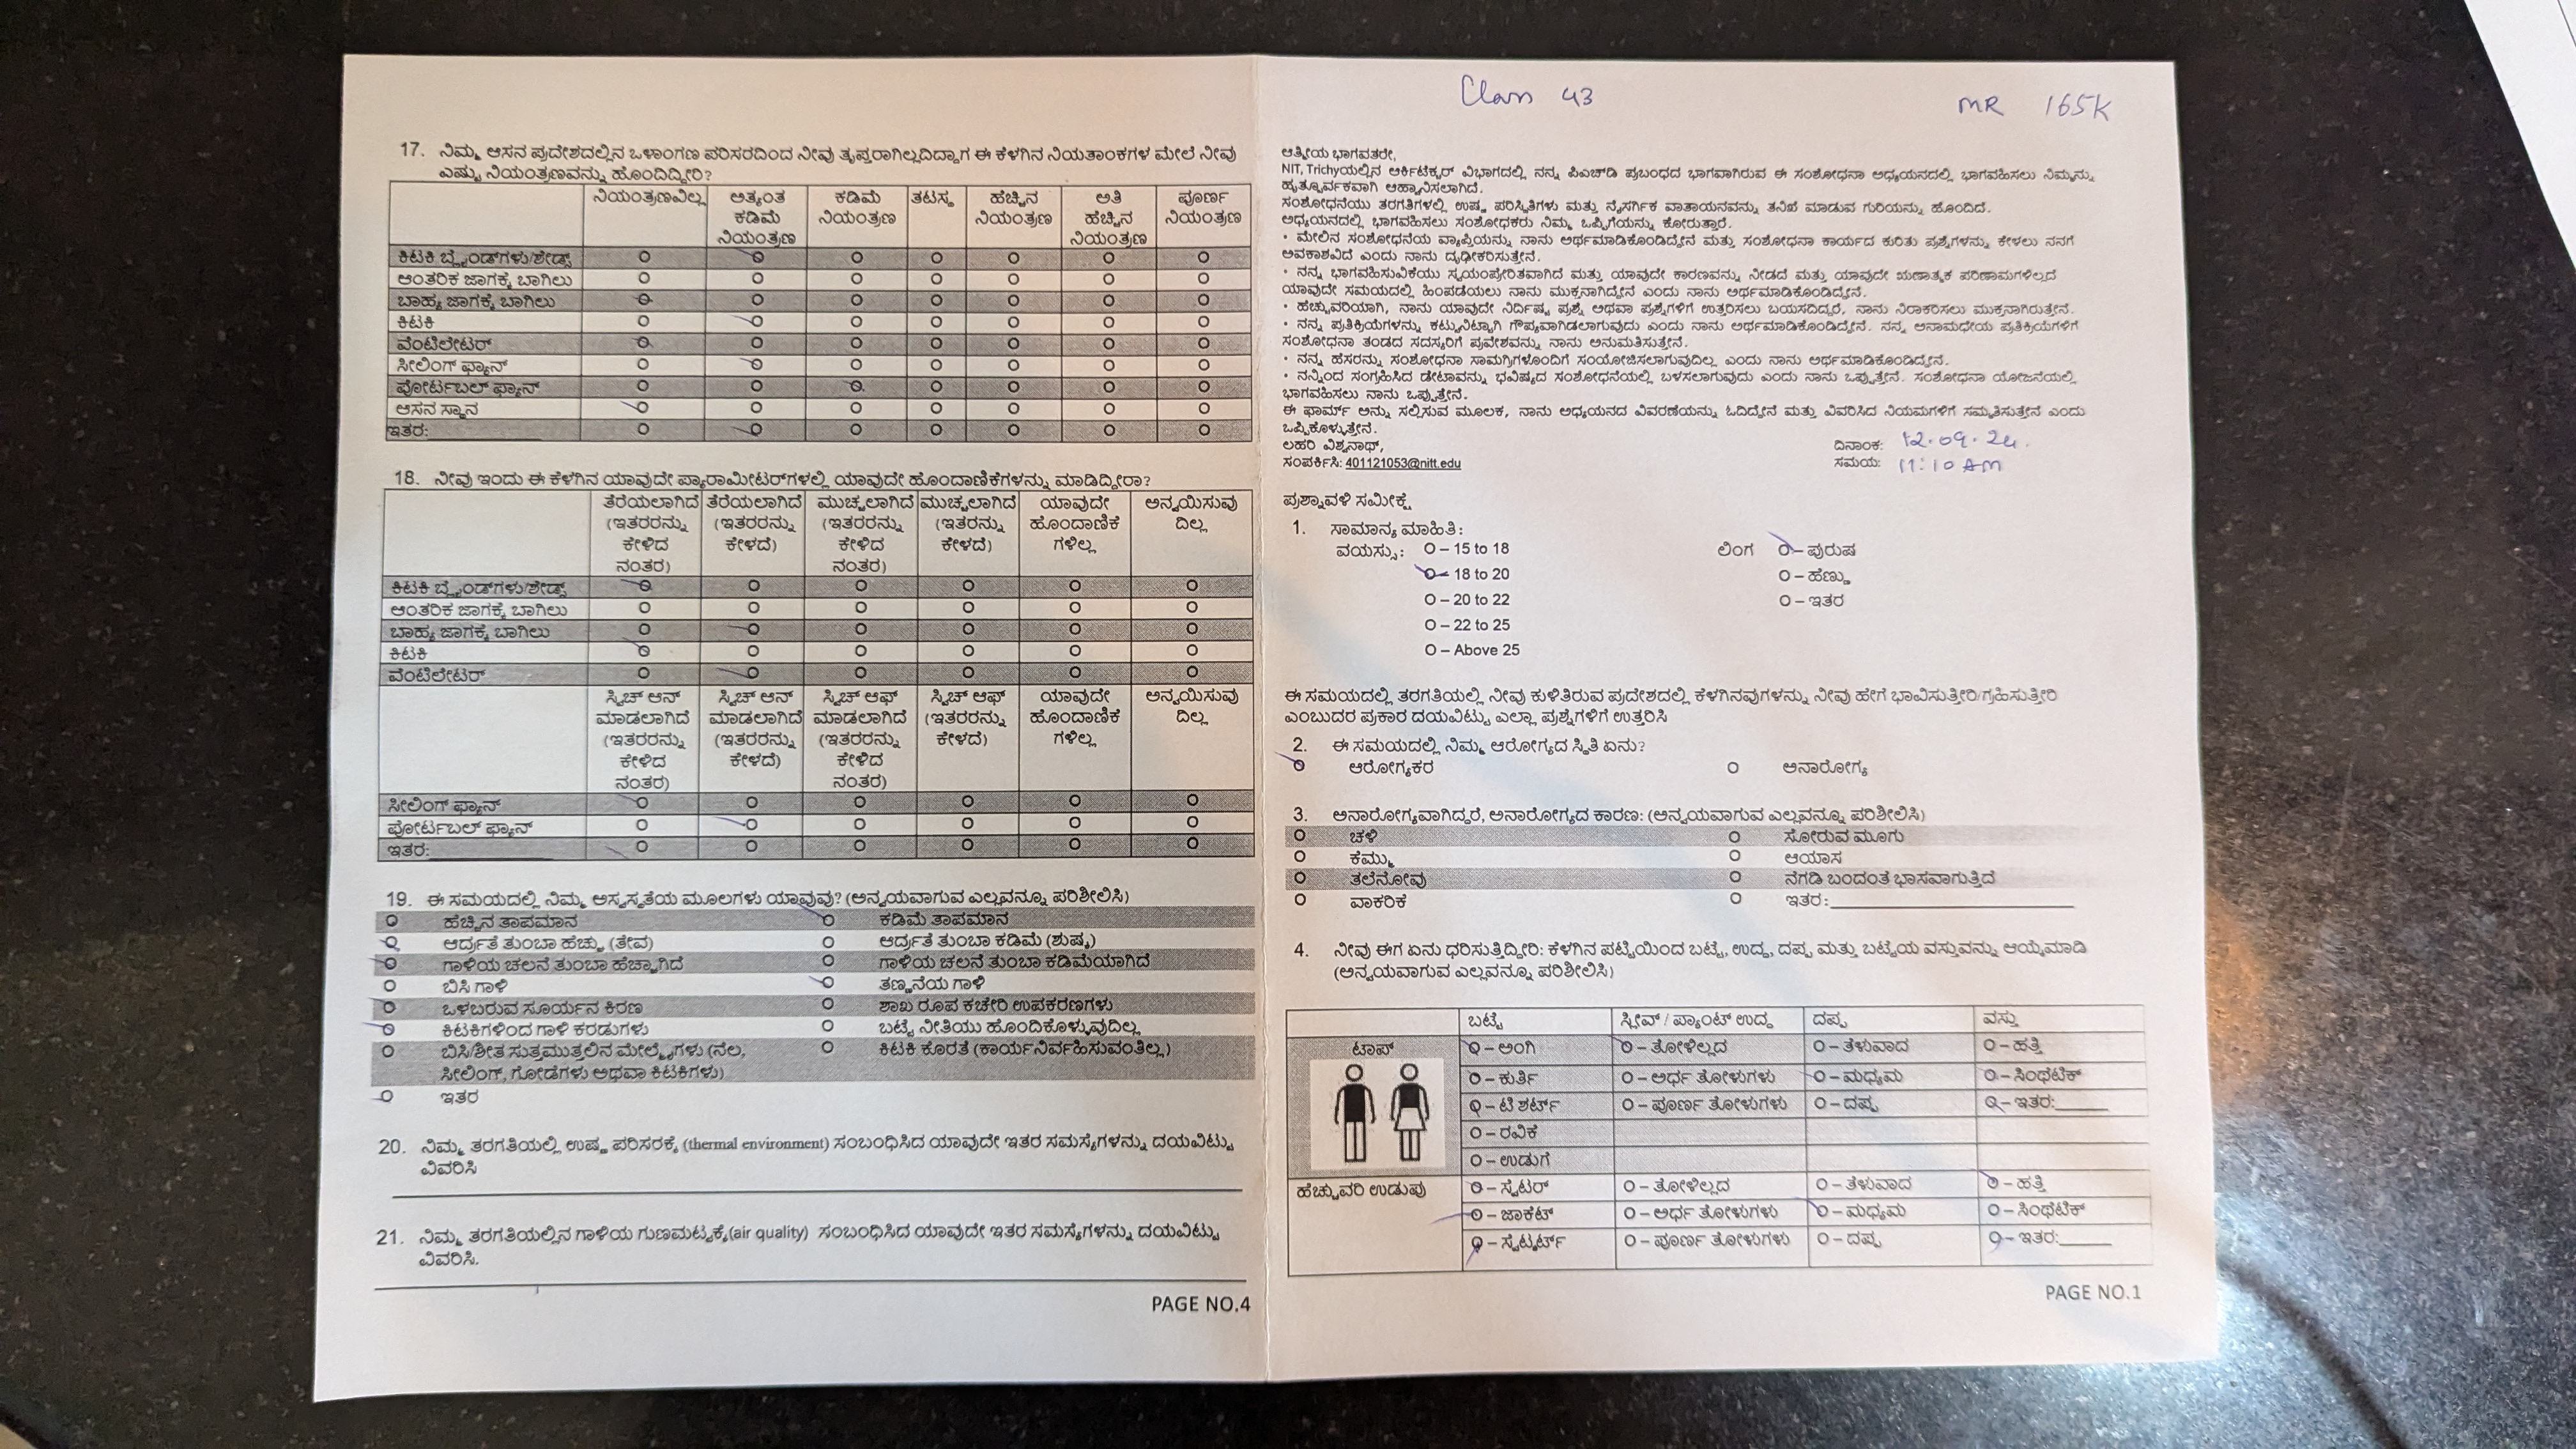 17. ನಿಮ್ಮ ಆಸನ ಪ್ರದೇಶದಲ್ಲಿನ ಒಳಾಂಗಣ ಪರಿಸರದಿಂದ ನೀವು ತೃಪ್ತರಾಗಿಲ್ಲದಿದ್ದಾಗ ಈ ಕೆಳಗಿನ ನಿಯತಾಂಕಗಳ ಮೇಲೆ ನೀವು
ಎಷ್ಟು ನಿಯಂತ್ರಣವನ್ನು ಹೊಂದಿದ್ದೀರಿ?
ನಿಯಂತ್ರಣವಿಲ್ಲ ಅತ್ಯಂತ ಕಡಿಮೆ ನಿಯಂತ್ರಣ ಕಡಿಮೆ ನಿಯಂತ್ರಣ ತಟಸ್ಥ ಹೆಚ್ಚಿನ ನಿಯಂತ್ರಣ ಅತಿ ಹೆಚ್ಚಿನ ನಿಯಂತ್ರಣ ಪೂರ್ಣ ನಿಯಂತ್ರಣ
ಕಿಟಕಿ ಬ್ಲೈಂಡ್‌ಗಳು/ಶೇಡ್ಸ್
ಆಂತರಿಕ ಜಾಗಕ್ಕೆ ಬಾಗಿಲು
ಬಾಹ್ಯ ಜಾಗಕ್ಕೆ ಬಾಗಿಲು
ಕಿಟಕಿ
ವೆಂಟಿಲೇಟರ್
ಸೀಲಿಂಗ್ ಫ್ಯಾನ್
ಪೋರ್ಟಬಲ್ ಫ್ಯಾನ್
ಆಸನ ಸ್ಥಾನ
ಇತರ:
18. ನೀವು ಇಂದು ಈ ಕೆಳಗಿನ ಯಾವುದೇ ಪ್ಯಾರಾಮೀಟರ್‌ಗಳಲ್ಲಿ ಯಾವುದೇ ಹೊಂದಾಣಿಕೆಗಳನ್ನು ಮಾಡಿದ್ದೀರಾ?
ತೆರೆಯಲಾಗಿದೆ (ಇತರರನ್ನು ಕೇಳಿದ ನಂತರ) ತೆರೆಯಲಾಗಿದೆ (ಇತರರನ್ನು ಕೇಳದೆ) ಮುಚ್ಚಲಾಗಿದೆ (ಇತರರನ್ನು ಕೇಳಿದ ನಂತರ) ಮುಚ್ಚಲಾಗಿದೆ (ಇತರರನ್ನು ಕೇಳದೆ) ಯಾವುದೇ ಹೊಂದಾಣಿಕೆ ಗಳಿಲ್ಲ ಅನ್ವಯಿಸುವು ದಿಲ್ಲ
ಕಿಟಕಿ ಬ್ಲೈಂಡ್‌ಗಳು/ಶೇಡ್ಸ್
ಆಂತರಿಕ ಜಾಗಕ್ಕೆ ಬಾಗಿಲು
ಬಾಹ್ಯ ಜಾಗಕ್ಕೆ ಬಾಗಿಲು
ಕಿಟಕಿ
ವೆಂಟಿಲೇಟರ್
ಸ್ವಿಚ್ ಆನ್ ಮಾಡಲಾಗಿದೆ (ಇತರರನ್ನು ಕೇಳಿದ ನಂತರ) ಸ್ವಿಚ್ ಆನ್ ಮಾಡಲಾಗಿದೆ (ಇತರರನ್ನು ಕೇಳದೆ) ಸ್ವಿಚ್ ಆಫ್ ಮಾಡಲಾಗಿದೆ (ಇತರರನ್ನು ಕೇಳಿದ ನಂತರ) ಸ್ವಿಚ್ ಆಫ್ (ಇತರರನ್ನು ಕೇಳದೆ) ಯಾವುದೇ ಹೊಂದಾಣಿಕೆ ಗಳಿಲ್ಲ ಅನ್ವಯಿಸುವು ದಿಲ್ಲ
ಸೀಲಿಂಗ್ ಫ್ಯಾನ್
ಪೋರ್ಟಬಲ್ ಫ್ಯಾನ್
ಇತರ:
19. ಈ ಸಮಯದಲ್ಲಿ ನಿಮ್ಮ ಅಸ್ವಸ್ಥತೆಯ ಮೂಲಗಳು ಯಾವುವು? (ಅನ್ವಯವಾಗುವ ಎಲ್ಲವನ್ನೂ ಪರಿಶೀಲಿಸಿ)
ಹೆಚ್ಚಿನ ತಾಪಮಾನ ಕಡಿಮೆ ತಾಪಮಾನ
ಆರ್ದ್ರತೆ ತುಂಬಾ ಹೆಚ್ಚು (ತೇವ) ಆರ್ದ್ರತೆ ತುಂಬಾ ಕಡಿಮೆ (ಶುಷ್ಕ)
ಗಾಳಿಯ ಚಲನೆ ತುಂಬಾ ಹೆಚ್ಚಾಗಿದೆ ಗಾಳಿಯ ಚಲನೆ ತುಂಬಾ ಕಡಿಮೆಯಾಗಿದೆ
ಬಿಸಿ ಗಾಳಿ ತಣ್ಣನೆಯ ಗಾಳಿ
ಒಳಬರುವ ಸೂರ್ಯನ ಕಿರಣ ಶಾಖ ರೂಪ ಕಚೇರಿ ಉಪಕರಣಗಳು
ಕಿಟಕಿಗಳಿಂದ ಗಾಳಿ ಕರಡುಗಳು ಬಟ್ಟೆ ನೀತಿಯು ಹೊಂದಿಕೊಳ್ಳುವುದಿಲ್ಲ
ಬಿಸಿ/ಶೀತ ಸುತ್ತಮುತ್ತಲಿನ ಮೇಲ್ಮೈಗಳು (ನೆಲ, ಕಿಟಕಿ ಕೊರತೆ (ಕಾರ್ಯನಿರ್ವಹಿಸುವಂತಿಲ್ಲ)
ಸೀಲಿಂಗ್, ಗೋಡೆಗಳು ಅಥವಾ ಕಿಟಕಿಗಳು)
ಇತರ
20. ನಿಮ್ಮ ತರಗತಿಯಲ್ಲಿ ಉಷ್ಣ ಪರಿಸರಕ್ಕೆ (thermal environment) ಸಂಬಂಧಿಸಿದ ಯಾವುದೇ ಇತರ ಸಮಸ್ಯೆಗಳನ್ನು ದಯವಿಟ್ಟು
ವಿವರಿಸಿ
21. ನಿಮ್ಮ ತರಗತಿಯಲ್ಲಿನ ಗಾಳಿಯ ಗುಣಮಟ್ಟಕ್ಕೆ(air quality) ಸಂಬಂಧಿಸಿದ ಯಾವುದೇ ಇತರ ಸಮಸ್ಯೆಗಳನ್ನು ದಯವಿಟ್ಟು
ವಿವರಿಸಿ.
PAGE NO.4
Class 43 MR 165K
ಆತ್ಮೀಯ ಭಾಗವತರೇ,
NIT, Trichyಯಲ್ಲಿನ ಆರ್ಕಿಟೆಕ್ಚರ್ ವಿಭಾಗದಲ್ಲಿ ನನ್ನ ಪಿಎಚ್‌ಡಿ ಪ್ರಬಂಧದ ಭಾಗವಾಗಿರುವ ಈ ಸಂಶೋಧನಾ ಅಧ್ಯಯನದಲ್ಲಿ ಭಾಗವಹಿಸಲು ನಿಮ್ಮನ್ನು
ಹೃತ್ಪೂರ್ವಕವಾಗಿ ಆಹ್ವಾನಿಸಲಾಗಿದೆ.
ಸಂಶೋಧನೆಯು ತರಗತಿಗಳಲ್ಲಿ ಉಷ್ಣ ಪರಿಸ್ಥಿತಿಗಳು ಮತ್ತು ನೈಸರ್ಗಿಕ ವಾತಾಯನವನ್ನು ತನಿಖೆ ಮಾಡುವ ಗುರಿಯನ್ನು ಹೊಂದಿದೆ.
ಅಧ್ಯಯನದಲ್ಲಿ ಭಾಗವಹಿಸಲು ಸಂಶೋಧಕರು ನಿಮ್ಮ ಒಪ್ಪಿಗೆಯನ್ನು ಕೋರುತ್ತಾರೆ.
• ಮೇಲಿನ ಸಂಶೋಧನೆಯ ವ್ಯಾಪ್ತಿಯನ್ನು ನಾನು ಅರ್ಥಮಾಡಿಕೊಂಡಿದ್ದೇನೆ ಮತ್ತು ಸಂಶೋಧನಾ ಕಾರ್ಯದ ಕುರಿತು ಪ್ರಶ್ನೆಗಳನ್ನು ಕೇಳಲು ನನಗೆ
ಅವಕಾಶವಿದೆ ಎಂದು ನಾನು ದೃಢೀಕರಿಸುತ್ತೇನೆ.
• ನನ್ನ ಭಾಗವಹಿಸುವಿಕೆಯು ಸ್ವಯಂಪ್ರೇರಿತವಾಗಿದೆ ಮತ್ತು ಯಾವುದೇ ಕಾರಣವನ್ನು ನೀಡದೆ ಮತ್ತು ಯಾವುದೇ ಋಣಾತ್ಮಕ ಪರಿಣಾಮಗಳಿಲ್ಲದೆ
ಯಾವುದೇ ಸಮಯದಲ್ಲಿ ಹಿಂಪಡೆಯಲು ನಾನು ಮುಕ್ತನಾಗಿದ್ದೇನೆ ಎಂದು ನಾನು ಅರ್ಥಮಾಡಿಕೊಂಡಿದ್ದೇನೆ.
• ಹೆಚ್ಚುವರಿಯಾಗಿ, ನಾನು ಯಾವುದೇ ನಿರ್ದಿಷ್ಟ ಪ್ರಶ್ನೆ ಅಥವಾ ಪ್ರಶ್ನೆಗಳಿಗೆ ಉತ್ತರಿಸಲು ಬಯಸದಿದ್ದರೆ, ನಾನು ನಿರಾಕರಿಸಲು ಮುಕ್ತನಾಗಿರುತ್ತೇನೆ.
• ನನ್ನ ಪ್ರತಿಕ್ರಿಯೆಗಳನ್ನು ಕಟ್ಟುನಿಟ್ಟಾಗಿ ಗೌಪ್ಯವಾಗಿಡಲಾಗುವುದು ಎಂದು ನಾನು ಅರ್ಥಮಾಡಿಕೊಂಡಿದ್ದೇನೆ. ನನ್ನ ಅನಾಮಧೇಯ ಪ್ರತಿಕ್ರಿಯೆಗಳಿಗೆ
ಸಂಶೋಧನಾ ತಂಡದ ಸದಸ್ಯರಿಗೆ ಪ್ರವೇಶವನ್ನು ನಾನು ಅನುಮತಿಸುತ್ತೇನೆ.
• ನನ್ನ ಹೆಸರನ್ನು ಸಂಶೋಧನಾ ಸಾಮಗ್ರಿಗಳೊಂದಿಗೆ ಸಂಯೋಜಿಸಲಾಗುವುದಿಲ್ಲ ಎಂದು ನಾನು ಅರ್ಥಮಾಡಿಕೊಂಡಿದ್ದೇನೆ.
• ನನ್ನಿಂದ ಸಂಗ್ರಹಿಸಿದ ಡೇಟಾವನ್ನು ಭವಿಷ್ಯದ ಸಂಶೋಧನೆಯಲ್ಲಿ ಬಳಸಲಾಗುವುದು ಎಂದು ನಾನು ಒಪ್ಪುತ್ತೇನೆ. ಸಂಶೋಧನಾ ಯೋಜನೆಯಲ್ಲಿ
ಭಾಗವಹಿಸಲು ನಾನು ಒಪ್ಪುತ್ತೇನೆ.
ಈ ಫಾರ್ಮ್ ಅನ್ನು ಸಲ್ಲಿಸುವ ಮೂಲಕ, ನಾನು ಅಧ್ಯಯನದ ವಿವರಣೆಯನ್ನು ಓದಿದ್ದೇನೆ ಮತ್ತು ವಿವರಿಸಿದ ನಿಯಮಗಳಿಗೆ ಸಮ್ಮತಿಸುತ್ತೇನೆ ಎಂದು
ಒಪ್ಪಿಕೊಳ್ಳುತ್ತೇನೆ.
ಲಹರಿ ವಿಶ್ವನಾಥ್, ದಿನಾಂಕ: 12.09.24.
ಸಂಪರ್ಕಿಸಿ: 401121053@nitt.edu ಸಮಯ: 11:10 AM
ಪ್ರಶ್ನಾವಳಿ ಸಮೀಕ್ಷೆ
1. ಸಾಮಾನ್ಯ ಮಾಹಿತಿ:
ವಯಸ್ಸು: O – 15 to 18 ಲಿಂಗ O – ಪುರುಷ
O – 18 to 20 O – ಹೆಣ್ಣು
O – 20 to 22 O – ಇತರ
O – 22 to 25
O – Above 25
ಈ ಸಮಯದಲ್ಲಿ ತರಗತಿಯಲ್ಲಿ ನೀವು ಕುಳಿತಿರುವ ಪ್ರದೇಶದಲ್ಲಿ ಕೆಳಗಿನವುಗಳನ್ನು ನೀವು ಹೇಗೆ ಭಾವಿಸುತ್ತೀರಿ/ಗ್ರಹಿಸುತ್ತೀರಿ
ಎಂಬುದರ ಪ್ರಕಾರ ದಯವಿಟ್ಟು ಎಲ್ಲಾ ಪ್ರಶ್ನೆಗಳಿಗೆ ಉತ್ತರಿಸಿ
2. ಈ ಸಮಯದಲ್ಲಿ ನಿಮ್ಮ ಆರೋಗ್ಯದ ಸ್ಥಿತಿ ಏನು?
ಆರೋಗ್ಯಕರ ಅನಾರೋಗ್ಯ
3. ಅನಾರೋಗ್ಯವಾಗಿದ್ದರೆ, ಅನಾರೋಗ್ಯದ ಕಾರಣ: (ಅನ್ವಯವಾಗುವ ಎಲ್ಲವನ್ನೂ ಪರಿಶೀಲಿಸಿ)
ಚಳಿ ಸೋರುವ ಮೂಗು
ಕೆಮ್ಮು ಆಯಾಸ
ತಲೆನೋವು ನೆಗಡಿ ಬಂದಂತೆ ಭಾಸವಾಗುತ್ತಿದೆ
ವಾಕರಿಕೆ ಇತರ:
4. ನೀವು ಈಗ ಏನು ಧರಿಸುತ್ತಿದ್ದೀರಿ: ಕೆಳಗಿನ ಪಟ್ಟಿಯಿಂದ ಬಟ್ಟೆ, ಉದ್ದ, ದಪ್ಪ ಮತ್ತು ಬಟ್ಟೆಯ ವಸ್ತುವನ್ನು ಆಯ್ಕೆಮಾಡಿ
(ಅನ್ವಯವಾಗುವ ಎಲ್ಲವನ್ನೂ ಪರಿಶೀಲಿಸಿ)
ಬಟ್ಟೆ ಸ್ಲೀವ್ / ಪ್ಯಾಂಟ್ ಉದ್ದ ದಪ್ಪ ವಸ್ತು
ಟಾಪ್ O – ಅಂಗಿ O – ತೋಳಿಲ್ಲದ O – ತೆಳುವಾದ O – ಹತ್ತಿ
O – ಕುರ್ತಿ O – ಅರ್ಧ ತೋಳುಗಳು O – ಮಧ್ಯಮ O – ಸಿಂಥೆಟಿಕ್
O – ಟಿ ಶರ್ಟ್ O – ಪೂರ್ಣ ತೋಳುಗಳು O – ದಪ್ಪ O – ಇತರ:
O – ರವಿಕೆ
O – ಉಡುಗೆ
ಹೆಚ್ಚುವರಿ ಉಡುಪು O – ಸ್ವೆಟರ್ O – ತೋಳಿಲ್ಲದ O – ತೆಳುವಾದ O – ಹತ್ತಿ
O – ಜಾಕೆಟ್ O – ಅರ್ಧ ತೋಳುಗಳು O – ಮಧ್ಯಮ O – ಸಿಂಥೆಟಿಕ್
O – ಸ್ವೆಟ್ಶರ್ಟ್ O – ಪೂರ್ಣ ತೋಳುಗಳು O – ದಪ್ಪ O – ಇತರ:
PAGE NO.1